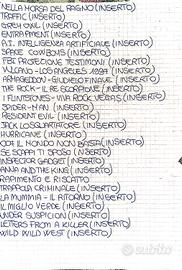 NELLA MORSA DEL RAGNO (INSERTO)
TRAFFIC (INSERTO)
GREY OWL (INSERTO)
ENTRAPMENT (INSERTO)
A.I. INTELLIGENZA ARTIFICIALE (INSERTO)
SPACE COWBOYS (INSERTO)
FBI PROTEZIONE TESTIMONI (INSERTO)
VULCANO - LOS ANGELES 1997 (INSERTO)
ARMAGEDDON - GIUDIZIO FINALE (INSERTO)
THE ROCK - IL RE SCORPIONE (INSERTO)
I FLINTSTONES - VIVA ROCK VEGAS (INSERTO)
SPIDER-MAN (INSERTO)
RESIDENT EVIL (INSERTO)
JACK LO SQUARTATORE (INSERTO)
HURRICANE (INSERTO)
007 IL MONDO NON BASTA (INSERTO)
SE SCAPPI TI SPOSO (INSERTO)
INSPECTOR GADGET (INSERTO)
ANNA AND THE KING (INSERTO)
RAPIMENTO E RISCATTO
TRAPPOLA CRIMINALE (INSERTO)
LA MUMMIA - IL RITORNO (INSERTO)
IL MIGLIO VERDE (INSERTO)
UNDER SUSPICION (INSERTO)
LETTERS FROM A KILLER (INSERTO)
WILD WILD WEST (INSERTO)
subito